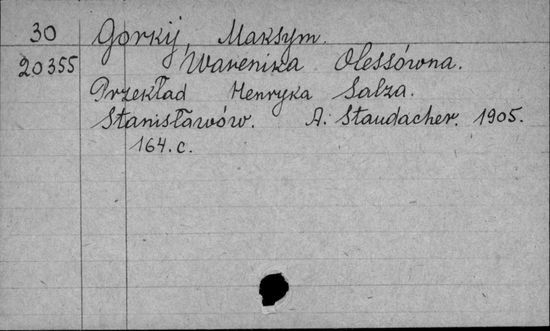 30 Gorkij, Maksym.
20355 Warenika Olessówna.
Przekład Henryka Salza.
Stanisławów. A. Staudacher. 1905.
164.c.